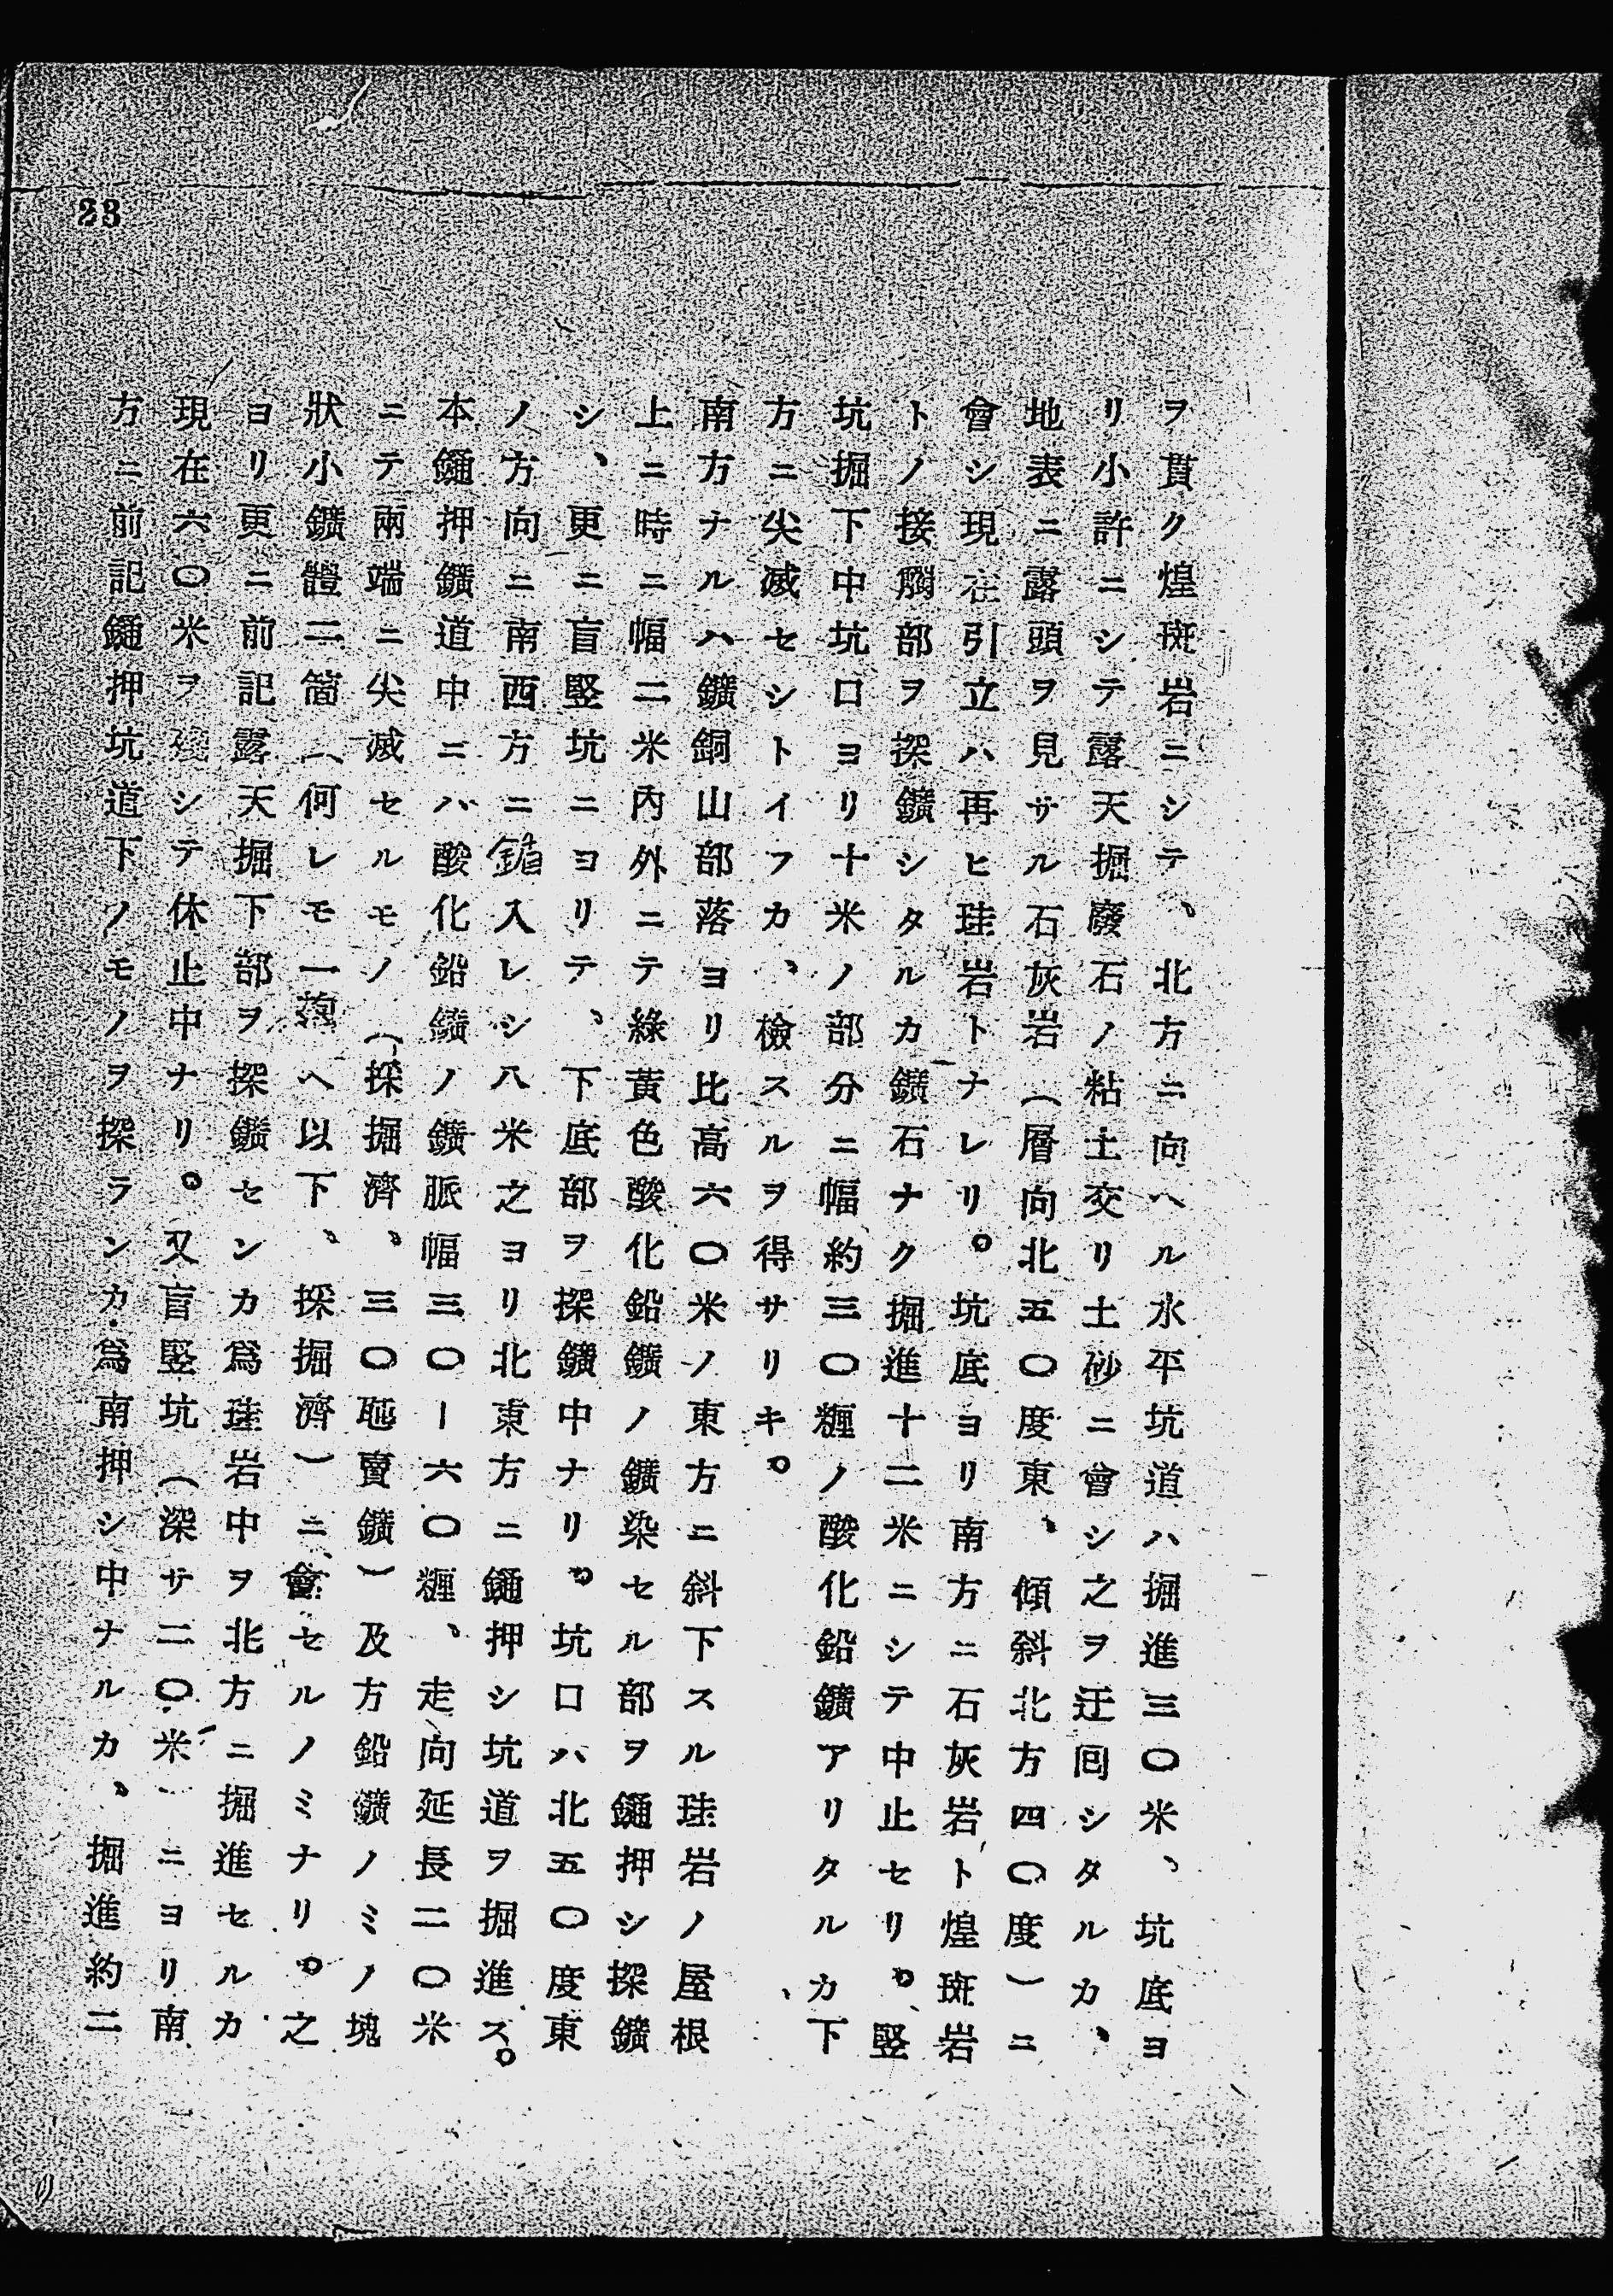 23
ヲ貫ク煌斑岩ニシテ、北方ニ向ヘル水平坑道ハ掘進三〇米、坑底ヨ
リ小許ニシテ露天掘廢石ノ粘土交リ土砂ニ會シ之ヲ迂囘シタルカ、
地表ニ露頭ヲ見サル石灰岩（層向北五〇度東、傾斜北方四〇度）ニ
會シ現在引立ハ再ヒ珪岩トナレリ。坑底ヨリ南方ニ石灰岩ト煌斑岩
トノ接觸部ヲ探鑛シタルカ鑛石ナク掘進十二米ニシテ中止セリ。竪
坑掘下中坑口ヨリ十米ノ部分ニ幅約三〇糎ノ酸化鉛鑛アリタルカ下
方ニ尖滅セシトイフカ、檢スルヲ得サリキ。
南方ナルハ鑛銅山部落ヨリ比高六〇米ノ東方ニ斜下スル珪岩ノ屋根
上ニ時ニ幅二米內外ニテ綠黃色酸化鉛鑛ノ鑛染セル部ヲ鑓押シ探鑛
シ、更ニ盲竪坑ニヨリテ、下底部ヲ探鑛中ナリ。坑口ハ北五〇度東
ノ方向ニ南西方ニ𨫤入レシ八米之ヨリ北東方ニ鑓押シ坑道ヲ掘進ス。
本鑓押鑛道中ニハ酸化鉛鑛ノ鑛脈幅三〇ー六〇糎、走向延長二〇米
ニテ兩端ニ尖滅セルモノ（採掘濟、三〇瓲賣鑛）及方鉛鑛ノミノ塊
狀小鑛體二箇（何レモ一瓲以下、採掘濟）ニ會セルノミナリ。之
ヨリ更ニ前記露天掘下部ヲ探鑛センカ爲珪岩中ヲ北方ニ掘進セルカ
現在六〇米ヲ殘シテ休止中ナリ。又盲竪坑（深サ二〇米）ニヨリ南
方ニ前記鑓押坑道下ノモノヲ探ランカ爲南押シ中ナルカ、掘進約二